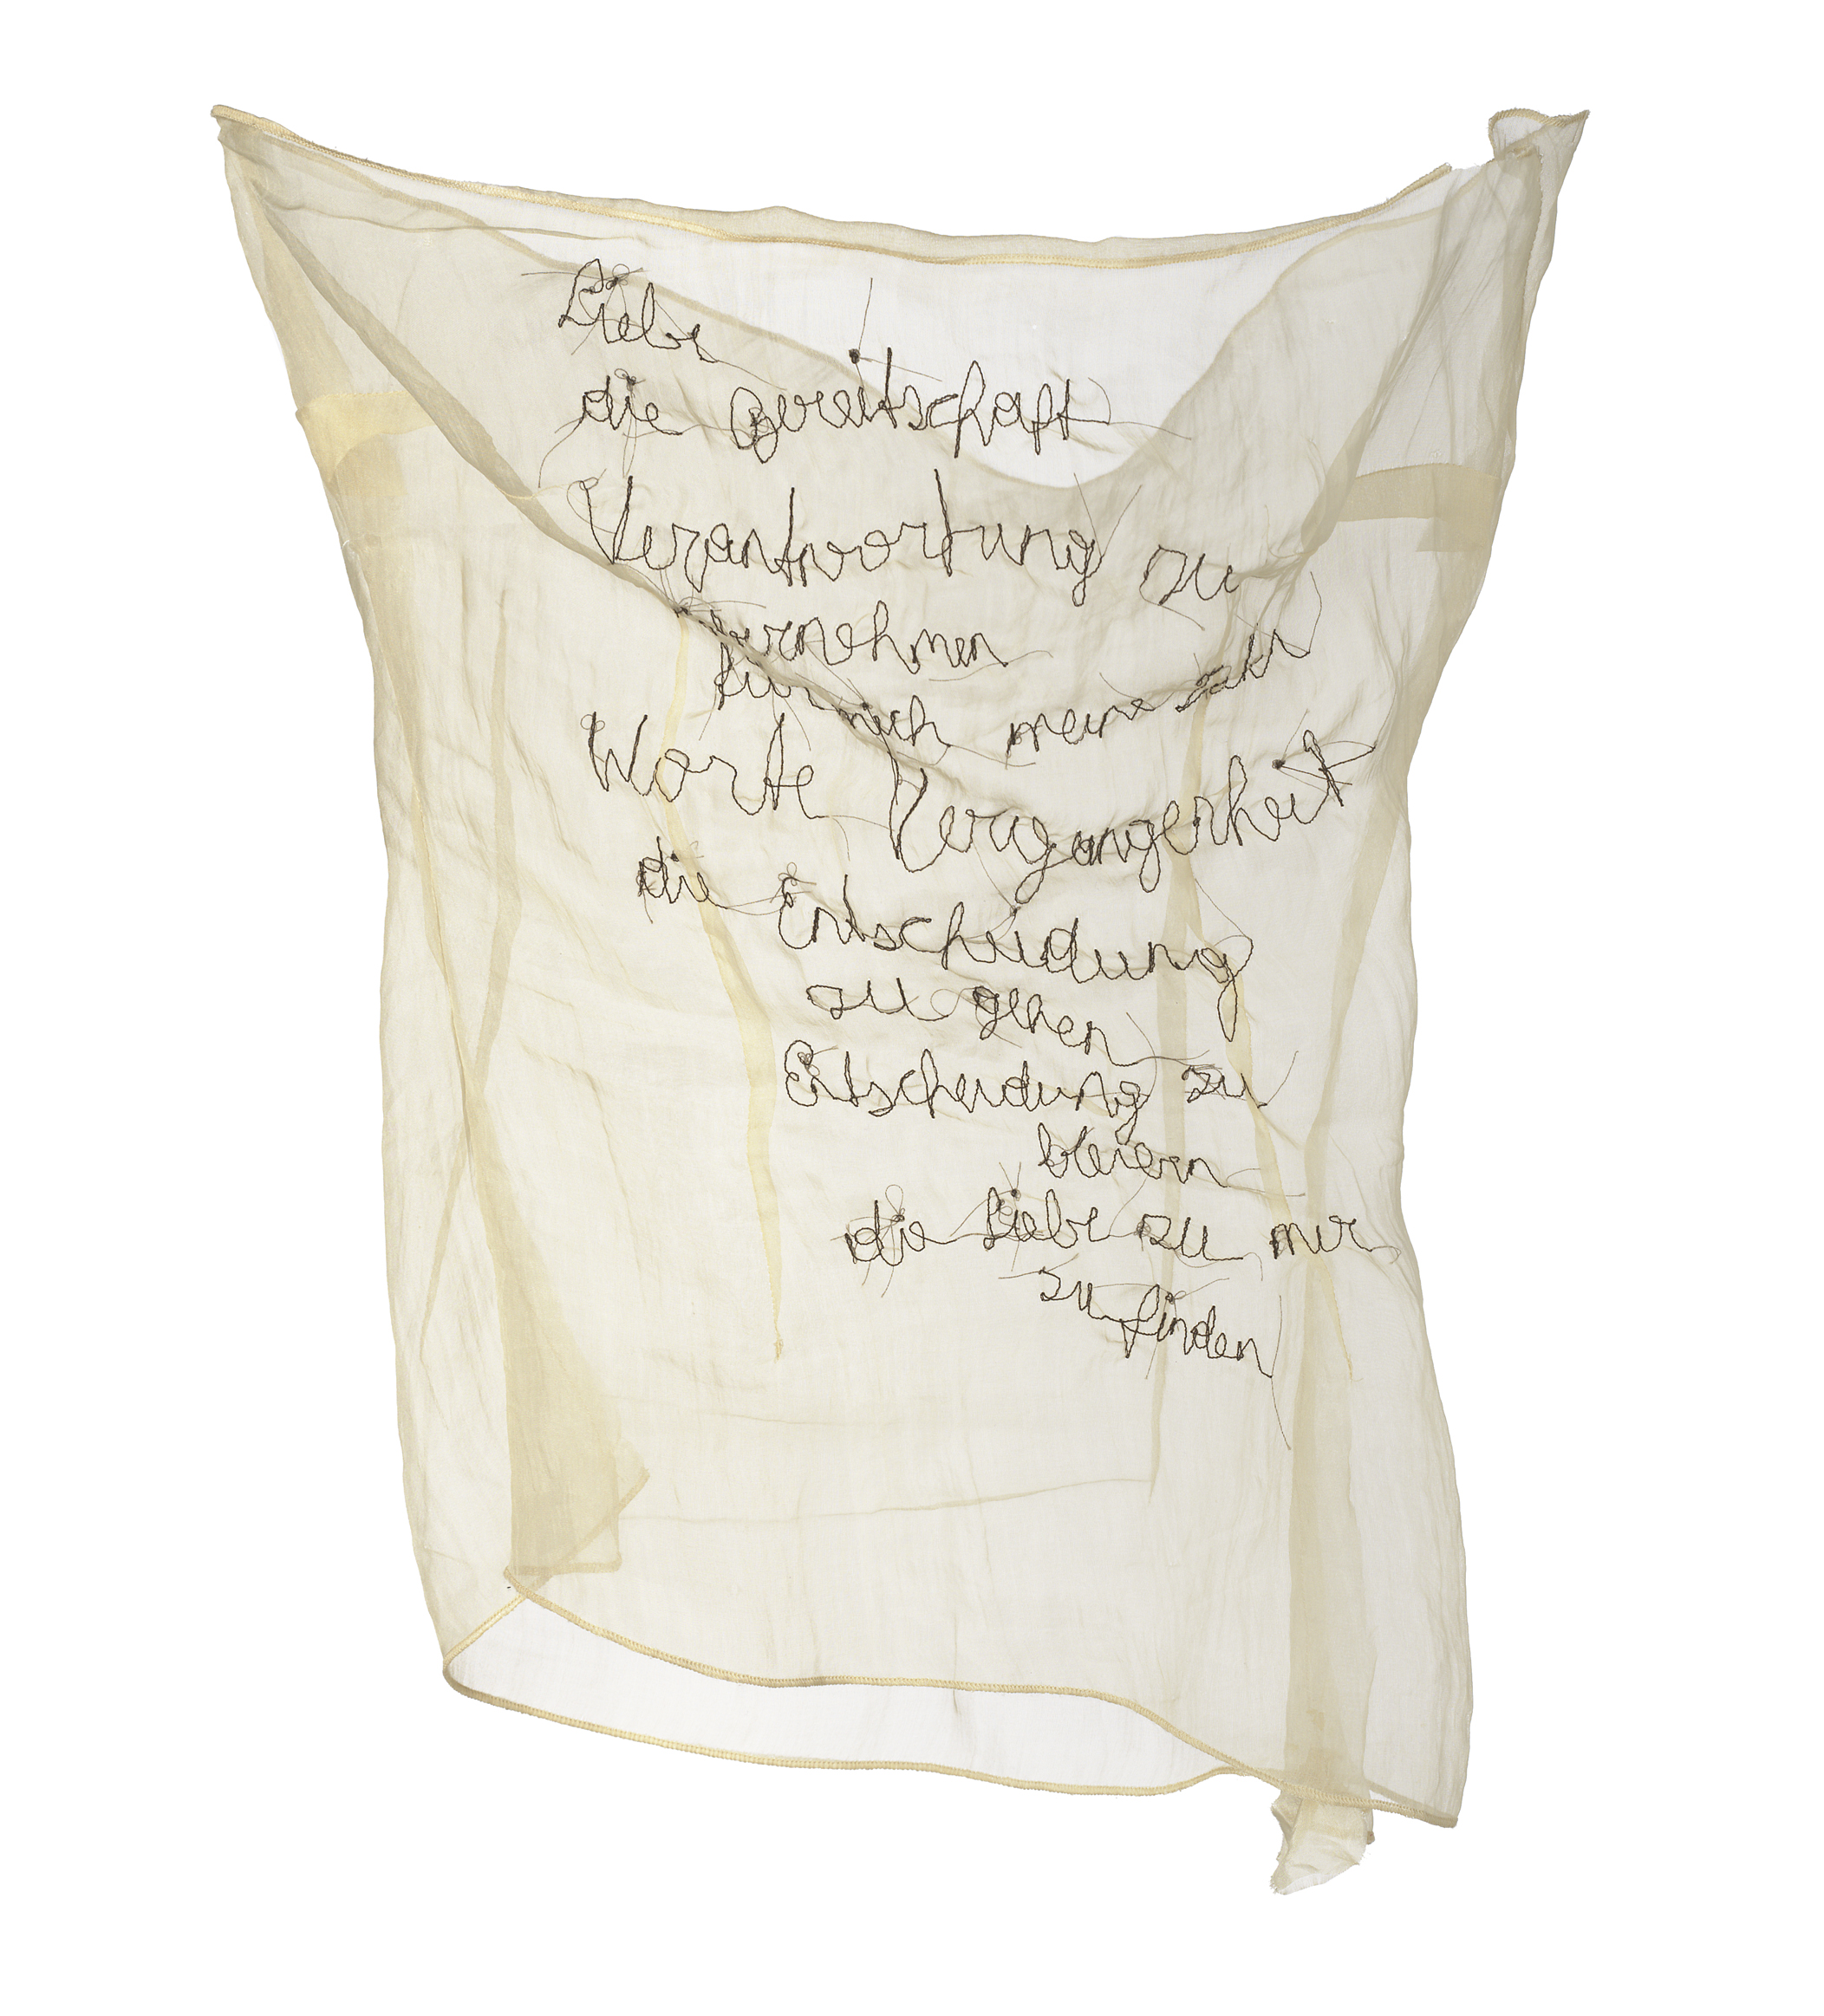 Liebe
die Bereitschaft
Verantwortung zu
übernehmen
für mich meine
Worte Vergangenheit
die Entscheidung
zu gehen
Entscheidung zu
bleiben
die Liebe zu mir
zu finden